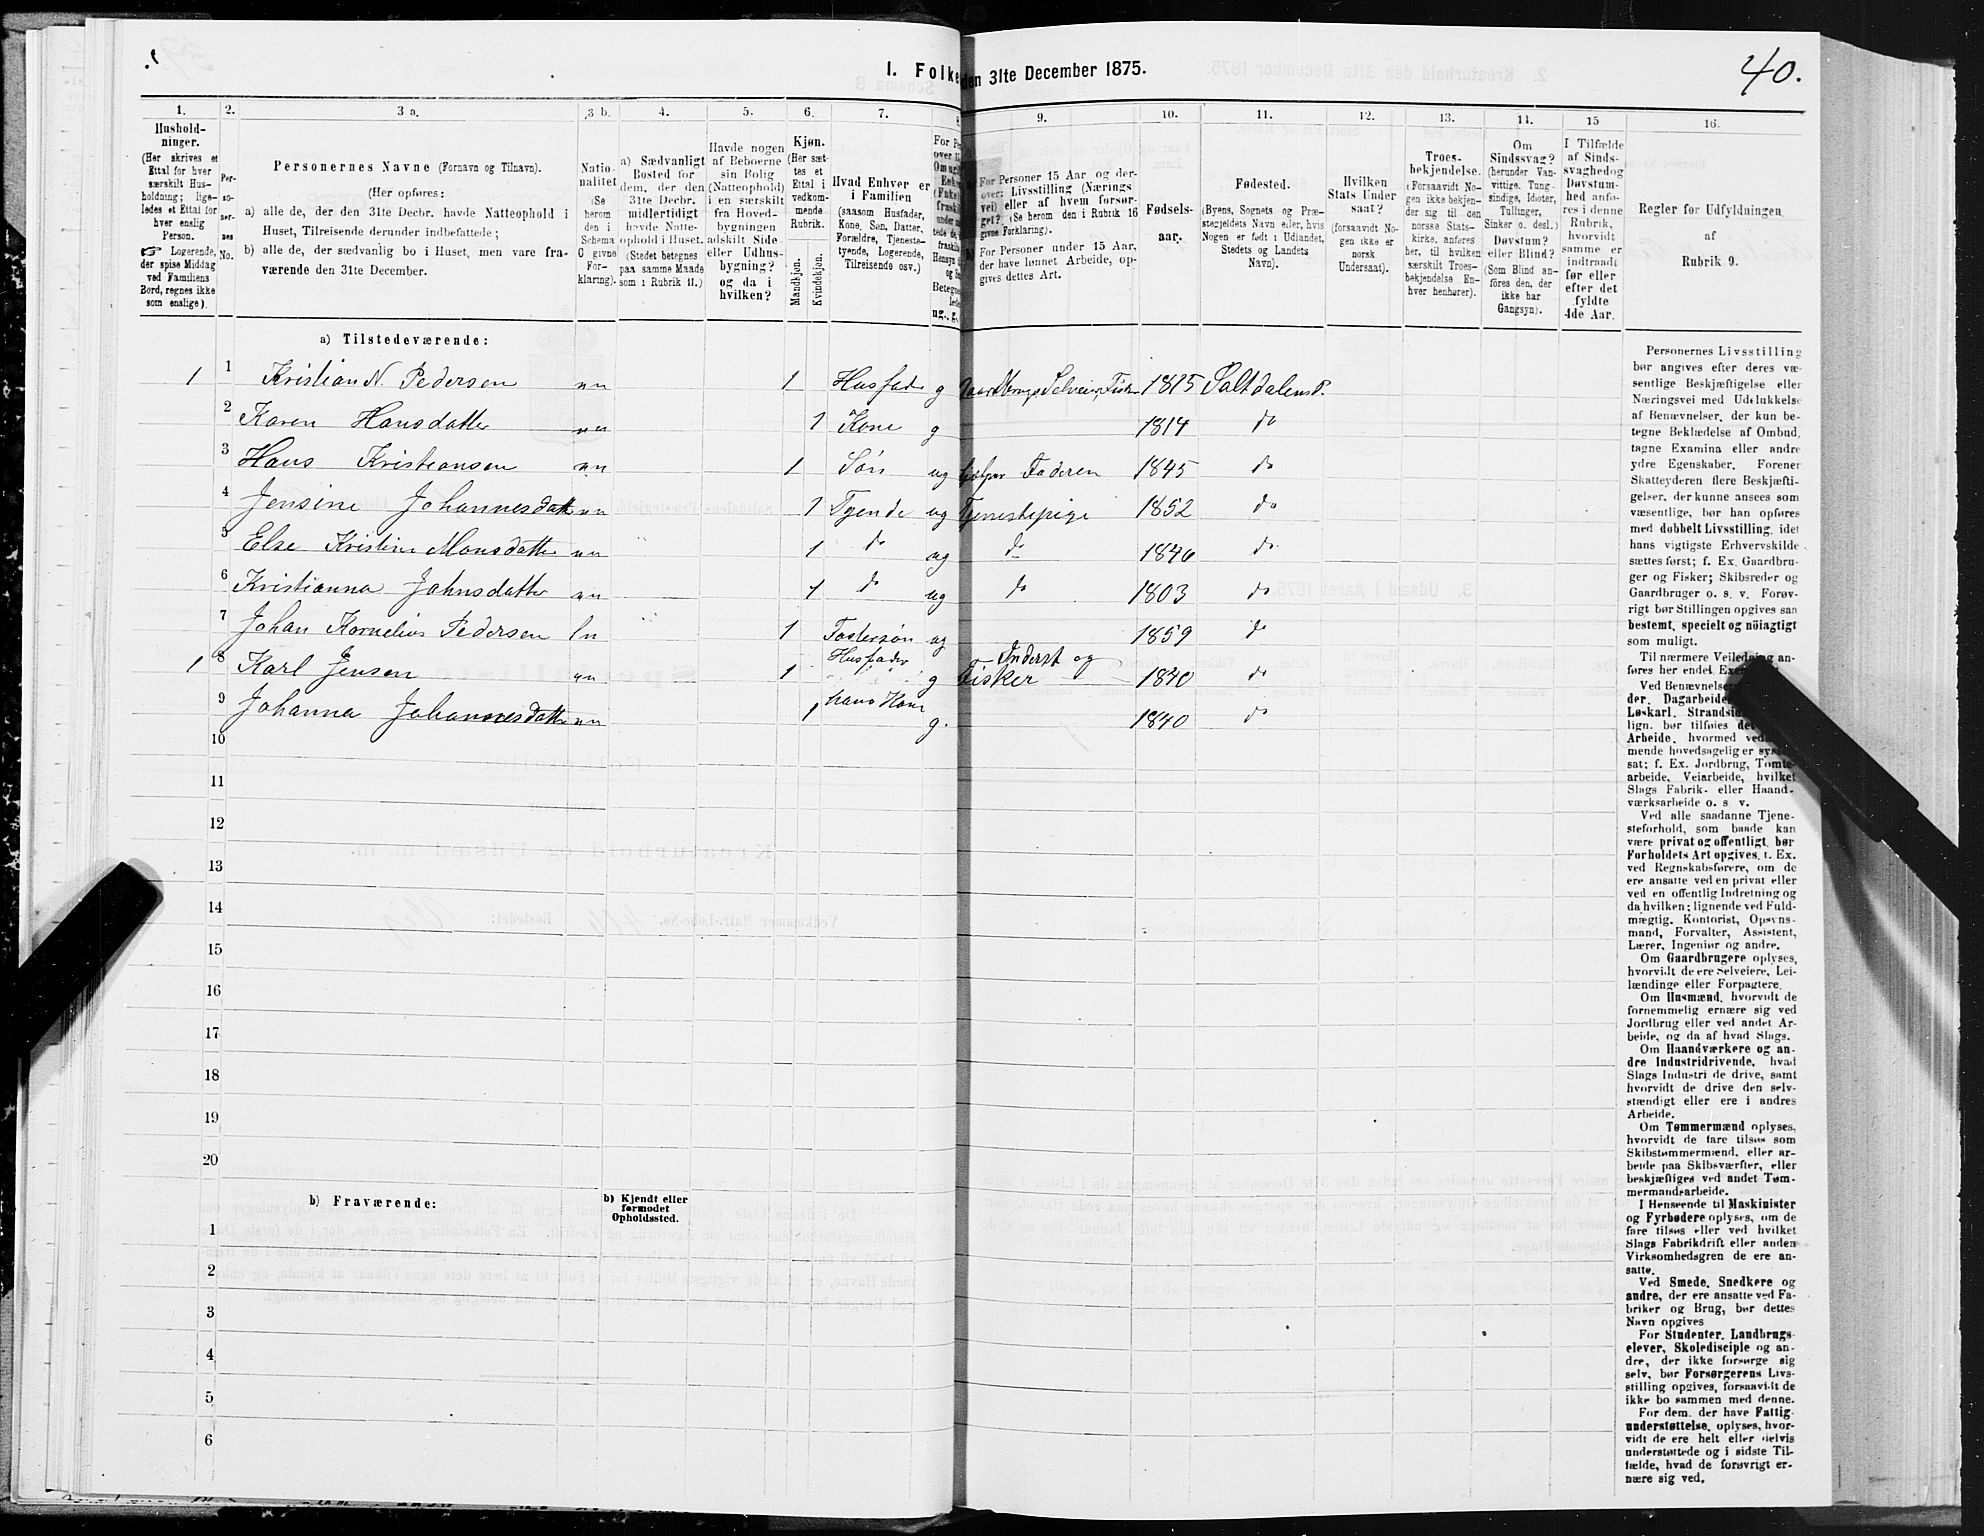 40.
I. Folke den 31te December 1875.
1. 2. 3 a. 3 b. 4. 5. 6. 7. 8. 9. 10. 11. 12. 13. 14. 15 16.
Hushold-
ninger.
(Her skrives et
Ettal for hver
særskilt Hus-
holdning; lige-
ledes et Ettal for
hver enslig
Person.
☞ Logerende,
der spise Middag
ved Familiens
Bord, regnes ikke
som enslige).
Per-
so-
ner-
nes
No.
Personernes Navne (Fornavn og Tilnavn).
(Her opføres:
a) alle de, der den 31te Decbr. havde Natteophold i
Huset, Tilreisende derunder indbefattede;
b) alle de, der sædvanlig bo i Huset, men vare fra-
værende den 31te December.
Natio-
nalitet
(Se
herom
den i
Schema
C givne
For-
klaring).
a) Sædvanligt
Bosted for
dem, der den
31te Decbr.
midlertidigt
havde Natte-
ophold i Huset.
(Stedet betegnes
paa samme Maade
som i Rubrik 11.)
Havde nogen
af Beboerne
sin Bolig
(Natteophold)
i en særskilt
fra Hoved-
bygningen
adskilt Side-
eller Udhus-
bygning?
og da i
hvilken?
Kjøn.
(Her sæt-
tes et
Ettal i
vedkom-
mende
Rubrik.
Mandkjøn.
Kvindekjøn.
Hvad Enhver er
i Familien
(saasom Husfader,
Kone, Søn, Datter,
Forældre, Tjeneste-
tyende, Logerende,
Tilreisende osv.)
ug., g.,
For Personer 15 Aar og der-
over: Livsstilling (Nærings
vei) eller af hvem forsør-
get? (Se herom den i Rubrik 16
givne Forklaring).
For Personer under 15 Aar,
der have lønnet Arbeide, op-
gives dettes Art.
Fødsels-
aar.
Fødested.
(Byens, Sognets og Præ-
stegjeldets Navn eller, hvis
Nogen er født i Udlandet,
Stedets og Landets
Navn).
Hvilken
Stats Under
saat?
(forsaavidt No-
gen ikke er
norsk
Undersaat).
Troes-
bekjendelse.
(Forsaavidt No-
gen ikke bekjen-
der sig til den
norske Stats-
kirke, anføres
her, til hvilken
særskilt Troes-
bekjendelse En-
hver henhører).
Om
Sindssvag?
(herunder Van-
vittige, Tung-
sindige, Idioter,
Tullinger,
Sinker o. desl.)
Døvstum?
eller Blind?
(Som Blind an-
føres den, der
ikke har
Gangsyn).
I Tilfælde
af Sinds-
svaghed og
Døvstum-
hed anfø-
res i denne
Rubrik,
hvorvidt
samme er
indtraadt
før eller
efter det
fyldte
4de Aar.
Regler for Udfyldningen
af
Rubrik 9.
a) Tilstedeværende:
1 1 Kristian N. Pedersen nn 1 Husfader g Gaardbruger Selveier, Fisker 1815 Saltdalens P.
2 Karen Hansdatter nn 1 Kone g 1814 do
3 Hans Kristiansen nn 1 Søn ug hjelper Faderen 1845 do
4 Jensine Johannesdatt nn 1 Tyende ug Tjenestepige 1852 do
5 Else Kristine Monsdatter nn 1 do ug do 1846 do
6 Kristianna Johnsdatter nn 1 do ug do 1803 do
7 Johan Kornelius Pedersen ln 1 Fostersøn ug 1859 do
1 8 Karl Jensen nn 1 Husfader g Inderst og Fisker 1840 do
9 Johanna Johannesdatter nn 1 hans Kone g. 1840 do
10
11
12
13
14
15
16
17
18
19
20
b) Fraværende:
b) Kjendt eller
formodet
Opholdssted.
1
2
3
4
5
6
Personernes Livsstilling
bør angives efter deres væ-
sentlige Beskjæftigelse eller
Næringsvei med Udelukkelse
af Benævnelser, der kun be-
tegne Beklædelse af Ombud,
tagne Examina eller andre
ydre Egenskaber. Forener
Skatteyderen flere Beskjæfti-
gelser, der kunne ansees som
væsentlige, bør han opføres
med dobbelt Livsstilling, idet
hans vigtigste Erhvervskilde
sættes først; f. Ex. Gaardbru-
ger og Fisker; Skibsreder og
Gaardbruger o. s. v. Forøv-
rigt bør Stillingen opgives saa
bestemt, specielt og nöiagtigt
som muligt.
Til nærmere Veiledning an-
føres her endel
Ved Benævnelser
der, Dagarbeide
Løskarl, Strandsid
lign. bør tilføies
Arbeide, hvormed
mende hovedsagelig er
sat; f. Ex. Jordbrug, Tomte-
arbeide, Veiarbeide, hvilket
Slags Fabrik- eller Haand-
værksarbeide o. s. v.
Ved alle saadanne Tjene-
steforhold, som baade kan
være privat og offentligt, bør
Forholdets Art opgives, t. Ex.
ved Regnskabsførere, om de
ere ansatte ved en privat eller
ved en offentlig Indretning og
da hvilken; lignende ved Fuld-
mægtig, Kontorist, Opsyns-
mand, Forvalter, Assistent,
Lærer, Ingeniør og andre.
Om Gaardbrugere oplyses,
hvorvidt de ere Selveiere, Lei-
lændinge eller Forpagtere.
Om Husmænd, hvorvidt de
fornemmelig ernære sig ved
Jordbrug eller ved andet Ar-
beide, og da af hvad Slags.
Om Haandværkere og an-
dre Industridrivende, hvad
Slags Industri de drive, samt
hvorvidt de drive den selv-
stændigt eller ere i andres
Arbeide.
Om Tømmermænd oplyses,
hvorvidt de fare tilsøs som
Skibstømmermænd, eller ar-
beide paa Skibsværfter, eller
beskjæftiges ved andet Tøm-
mermandsarbeide.
I Henseende til Maskinister
og Fyrbødere oplyses, om de
fare tilsøs eller ved hvilket
Slags Fabrikdrift eller anden
Virksomhedsgren de ere an-
satte.
Ved Smede, Snedkere og
andre, der ere ansatte ved Fa-
briker og Brug, bør dettes
Navn opgives
For Studenter, Landbrugs-
elever, Skoledisciple og an-
dre, der ikke forsørge sig
selv, bør Forsørgerens Livs-
stilling opgives, forsaavidt de
ikke bo sammen med denne.
For dem, der have Fattig-
understøttelse, oplyses, hvor-
vidt de ere helt eller delvis
understøttede og i sidste Til-
fælde, hvad de forøvrigt er-
nære sig ved.